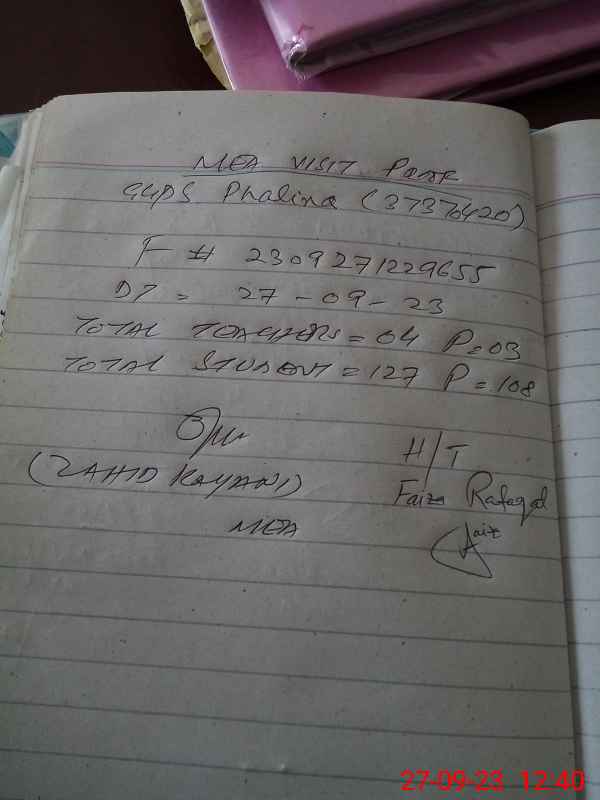 MEA VISIT PROOF
GGPS Phalina (37376420)
F # 2309271229655
DT = 27-09-23
TOTAL TEACHERS = 04 P=03
TOTAL STUDENT = 127 P=108
(ZAHID KAYANI)
MEA
H/T
Faiza Rafaqat
Faiz
27-09-23 12:40